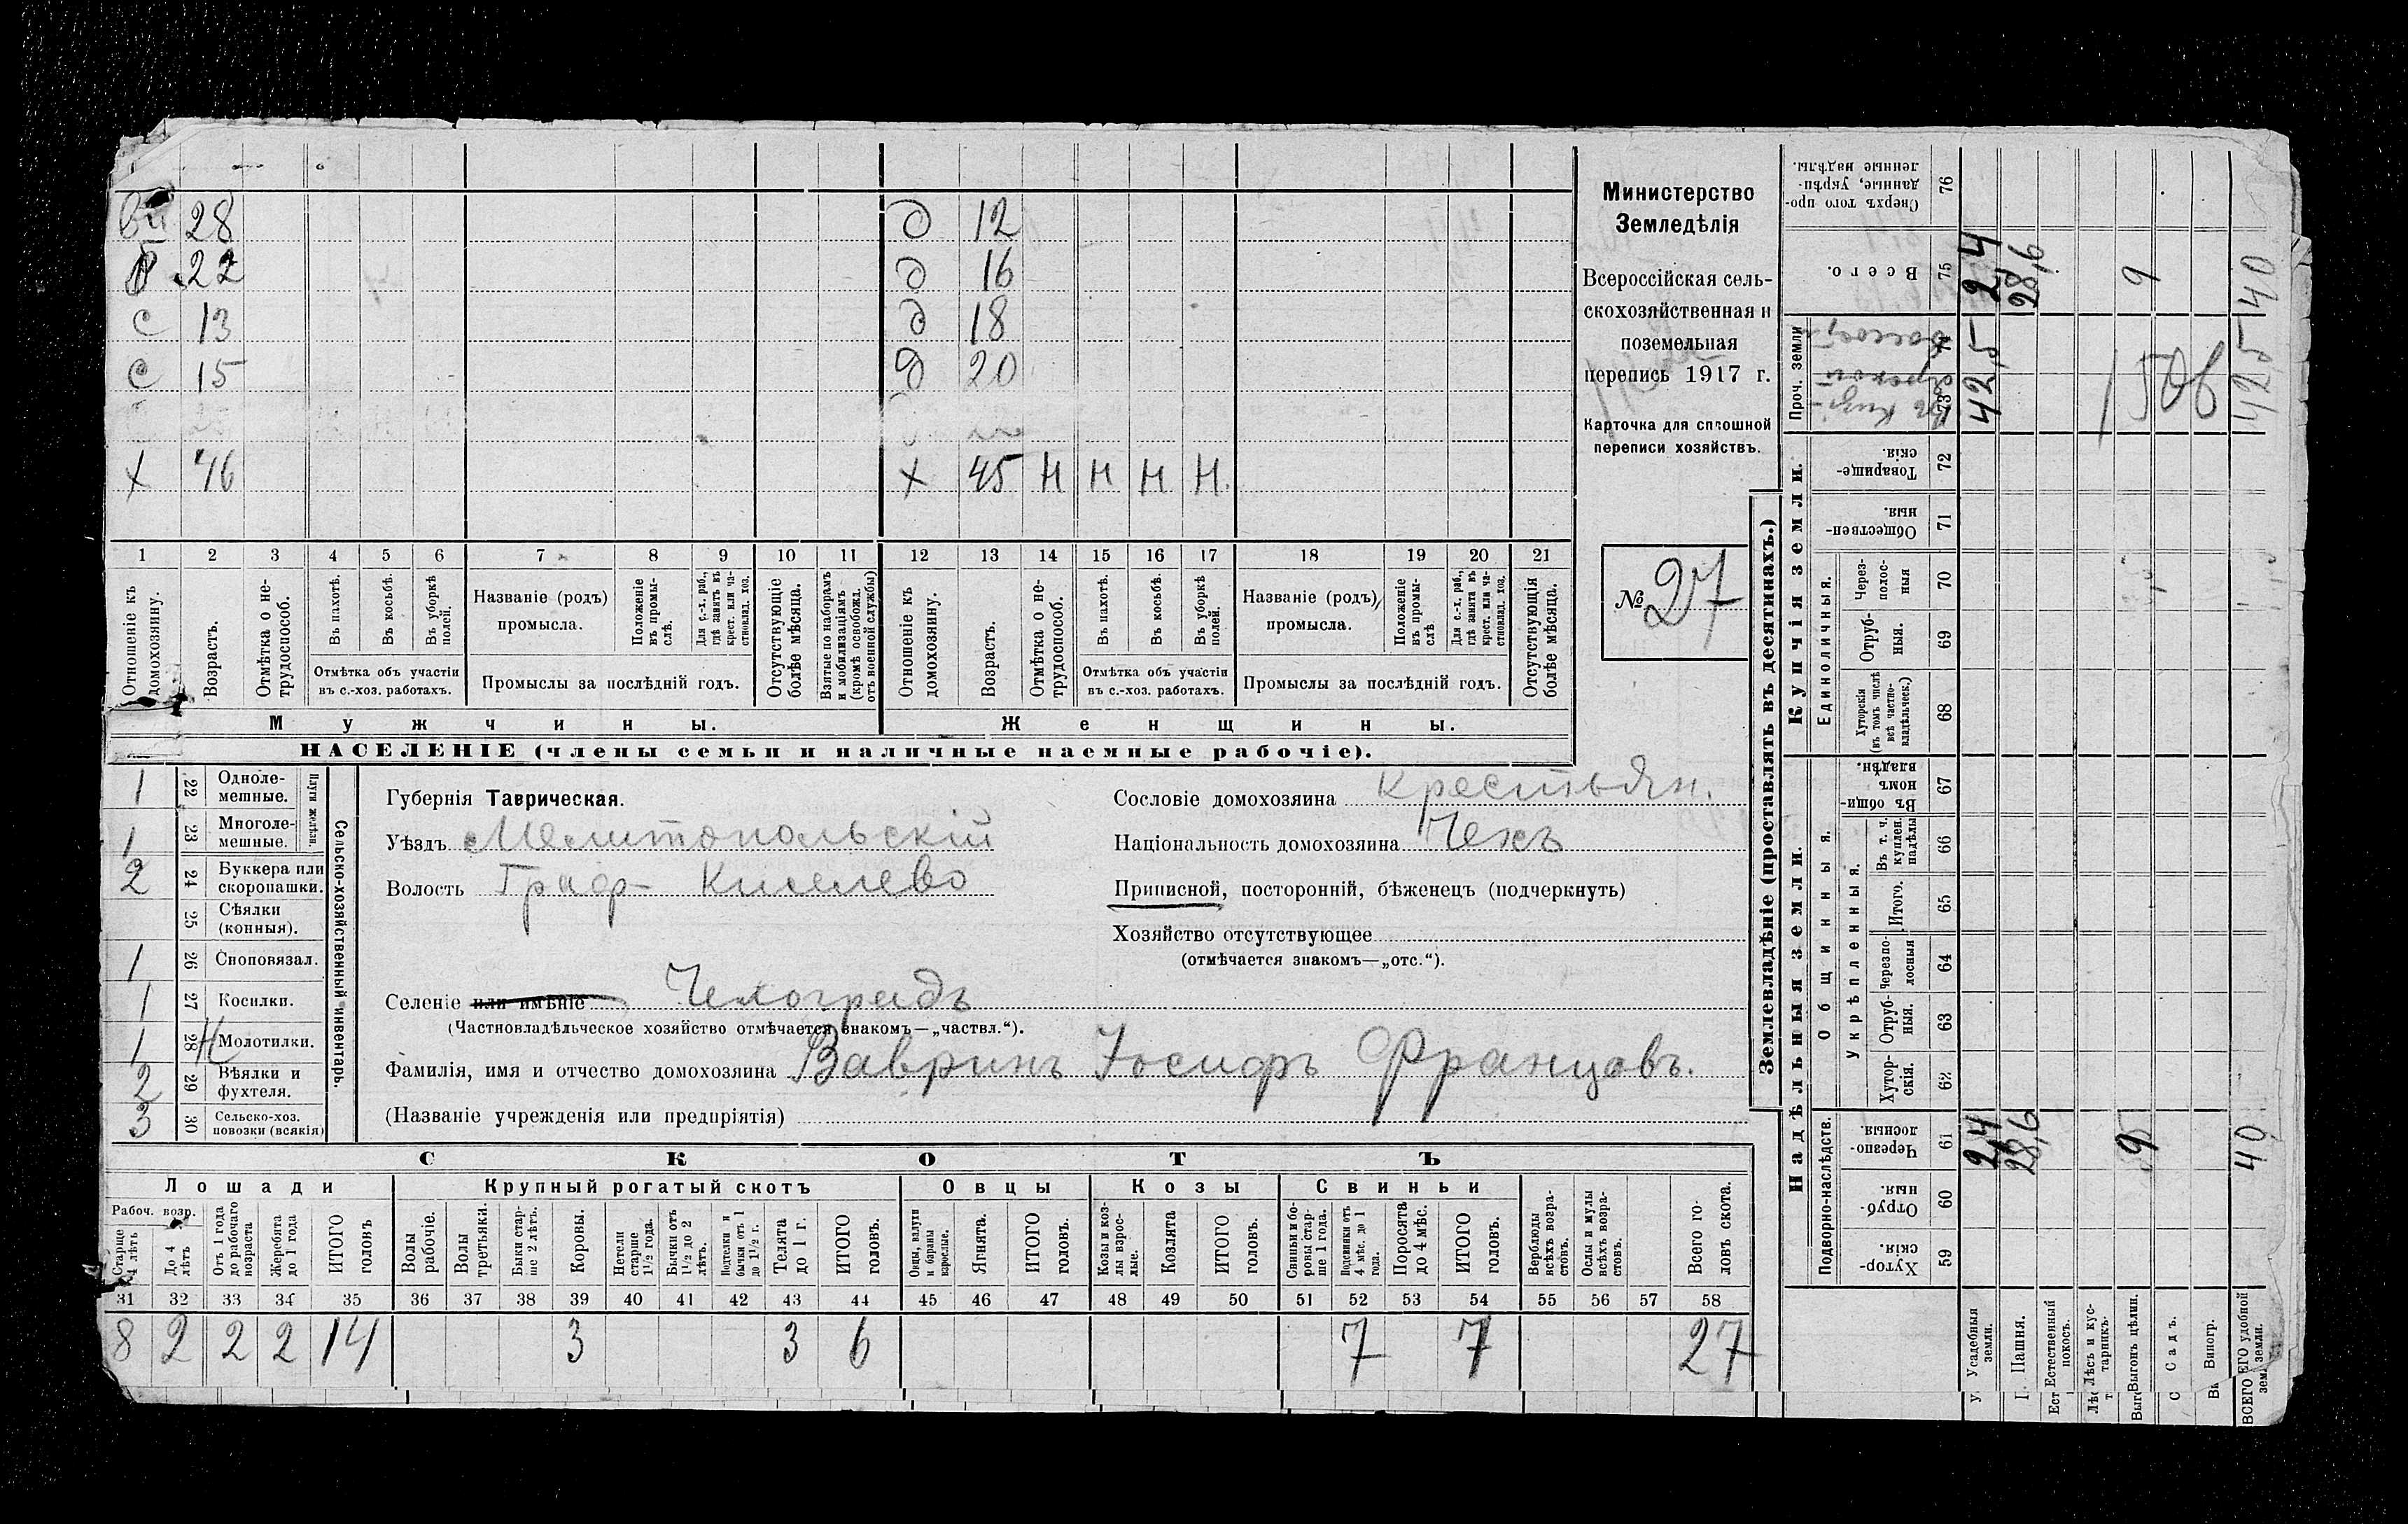 вн 28 д 12
22 д 16
с 13 д 18
с 15 д 20
х 46 х 45 Н Н Н Н
1 2 3 4 5 6 7 8 9 10 11 12 13 14 15 16 17 18 19 20 21
Отношеніе къ домохозяину.
Возрастъ.
Отмѣтка о не-трудоспособ.
Въ пахотѣ.
Въ косьбѣ.
Въ уборкѣ полей.
Отмѣтка объ участіи
въ с.-хоз. работахъ.
Названіе (родъ)
промысла.
Положеніе въ промы-слѣ.
Для с.-х. раб., гдѣ занятъ въ крест. или ча-стновлад. хоз.
Промыслы за послѣдній годъ.
Отсутствующіе болѣе мѣсяца.
Взятые по наборамъ и мобилизаціямъ (кромѣ освобожд. отъ военной службы)
Отношеніе къ домохозяину.
Возрастъ.
Отмѣтка о не-трудоспособ.
Въ пахотѣ.
Въ косьбѣ.
Въ уборкѣ полей.
Отмѣтка объ участіи
въ с.-хоз. работахъ.
Названіе (родъ)
промысла.
Положеніе въ промы-слѣ
Для с.-х. раб., гдѣ занята въ крест. или ча-стновлад. хоз.
Промыслы за послѣдній годъ.
Отсутствующія болѣе мѣсяца.
Мужчины. Женщины.
НАСЕЛЕНІЕ (члены семьи и наличные наемные рабочіе).
Министерство
Земледѣлія
Всероссійская сель-
скохозяйственная и
поземельная
перепись 1917 г.
Карточка для сплошной
переписи хозяйствъ.
№ 27
1 22 Одноле-мешные.
1 23 Многоле-мешные.
Плуги желѣзн.
2 24 Буккера или скоропашки.
25 Сѣялки (конныя).
1 26 Сноповязал.
1 27 Косилки.
1 28 Молотилки.
2 29 Вѣялки и фухтеля.
3 30 Сельско-хоз. повозки (всякія)
Сельско-хозяйственный инвентарь.
Губернія Таврическая.
Уѣздъ Мелитопольскій
Волость Граф- Киселево
Селеніе или имѣніе Чехоградъ
(Частновладѣльческое хозяйство отмѣчается знакомъ—„частвл.“).
Фамилія, имя и отчество домохозяина Вавринъ Іосифъ Францовъ.
(Названіе учрежденія или предпріятія)
Сословіе домохозяина крестьян.
Національность домохозяина Чехъ
Приписной, посторонній, бѣженецъ (подчеркнуть)
Хозяйство отсутствующее
(отмѣчается знакомъ—„отс.“).
СКОТЪ
Лошади Крупный рогатый скотъ Овцы Козы Свиньи
Рабоч. возр.
Старше 4 лѣтъ
До 4 лѣтъ
Отъ 1 года до рабочаго возраста
Жеребята до 1 года
ИТОГО головъ
Волы рабочіе.
Волы третьяки.
Быки стар-ше 2 лѣтъ.
Коровы.
Нетели старше 1½ года.
Бычки отъ 1½ до 2 лѣтъ.
Подтелки и бычки отъ 1 до 1½ г.
Телята до 1 г.
ИТОГО головъ.
Овцы, валухи и бараны взрослые.
Ягнята.
ИТОГО головъ.
Козы и коз-лы взрос-лые.
Козлята
ИТОГО головъ.
Свиньи и бо-ровы стар-ше 1 года.
Подсвинки отъ 4 мѣс. до 1 года.
Поросята до 4 мѣс.
ИТОГО головъ.
Верблюды всѣхъ возра-стовъ.
Ослы и мулы всѣхъ возра-стовъ.
Всего го-ловъ скота.
31 32 33 34 35 36 37 38 39 40 41 42 43 44 45 46 47 48 49 50 51 52 53 54 55 56 57 58
8 2 2 2 14 3 3 6 7 7 27
Землевладѣніе (проставлять въ десятинахъ.)
Надѣльныя земли. Купчія земли. Проч. земли
Подворно-наслѣдств.
Общинныя.
Укрѣпленныя.
Единоличныя.
Хутор-скія. 59
Отруб-ныя. 60
Черезпо-лосныя. 61
Хутор-скія. 62
Отруб-ныя. 63
Черезпо-лосныя 64
Итого. 65
Въ т. ч. куплен. надѣлы 66
Въ общи-номъ владѣн. 67
Хуторскія (въ томъ числѣ всѣ частно-владѣльческ.) 68
Отруб-ныя. 69
Через-полос-ныя 70
Обществен-ныя. 71
Товарище-скія. 72
73
Всего. 75
Сверхъ того про-данные, укрѣп-ленные надѣлы. 76
Усадебныя земли. 24 425 24
Пашня. 28,6 28,6
Естественный покосъ.
Лѣсъ и кус-тарникъ.
Выгонъ цѣлин. 9 9
Садъ.
Виногр.
ВСЕГО удобной земли. 40 425 40